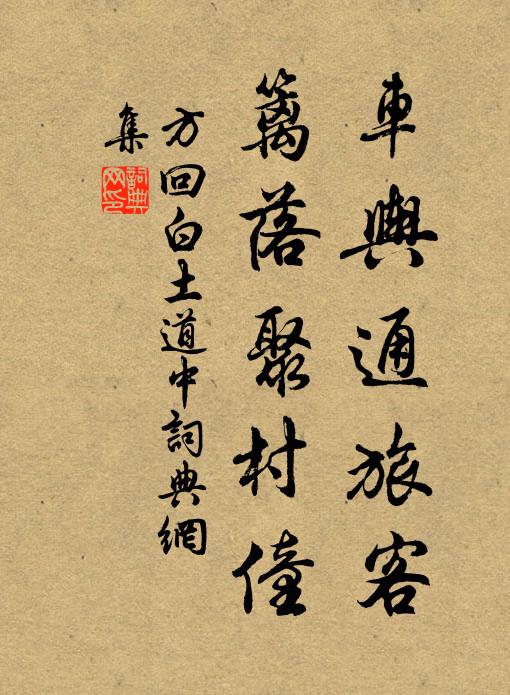 車輿通旅客
籬落聚村僮
方回白土道中詞典網
集
詞典網印